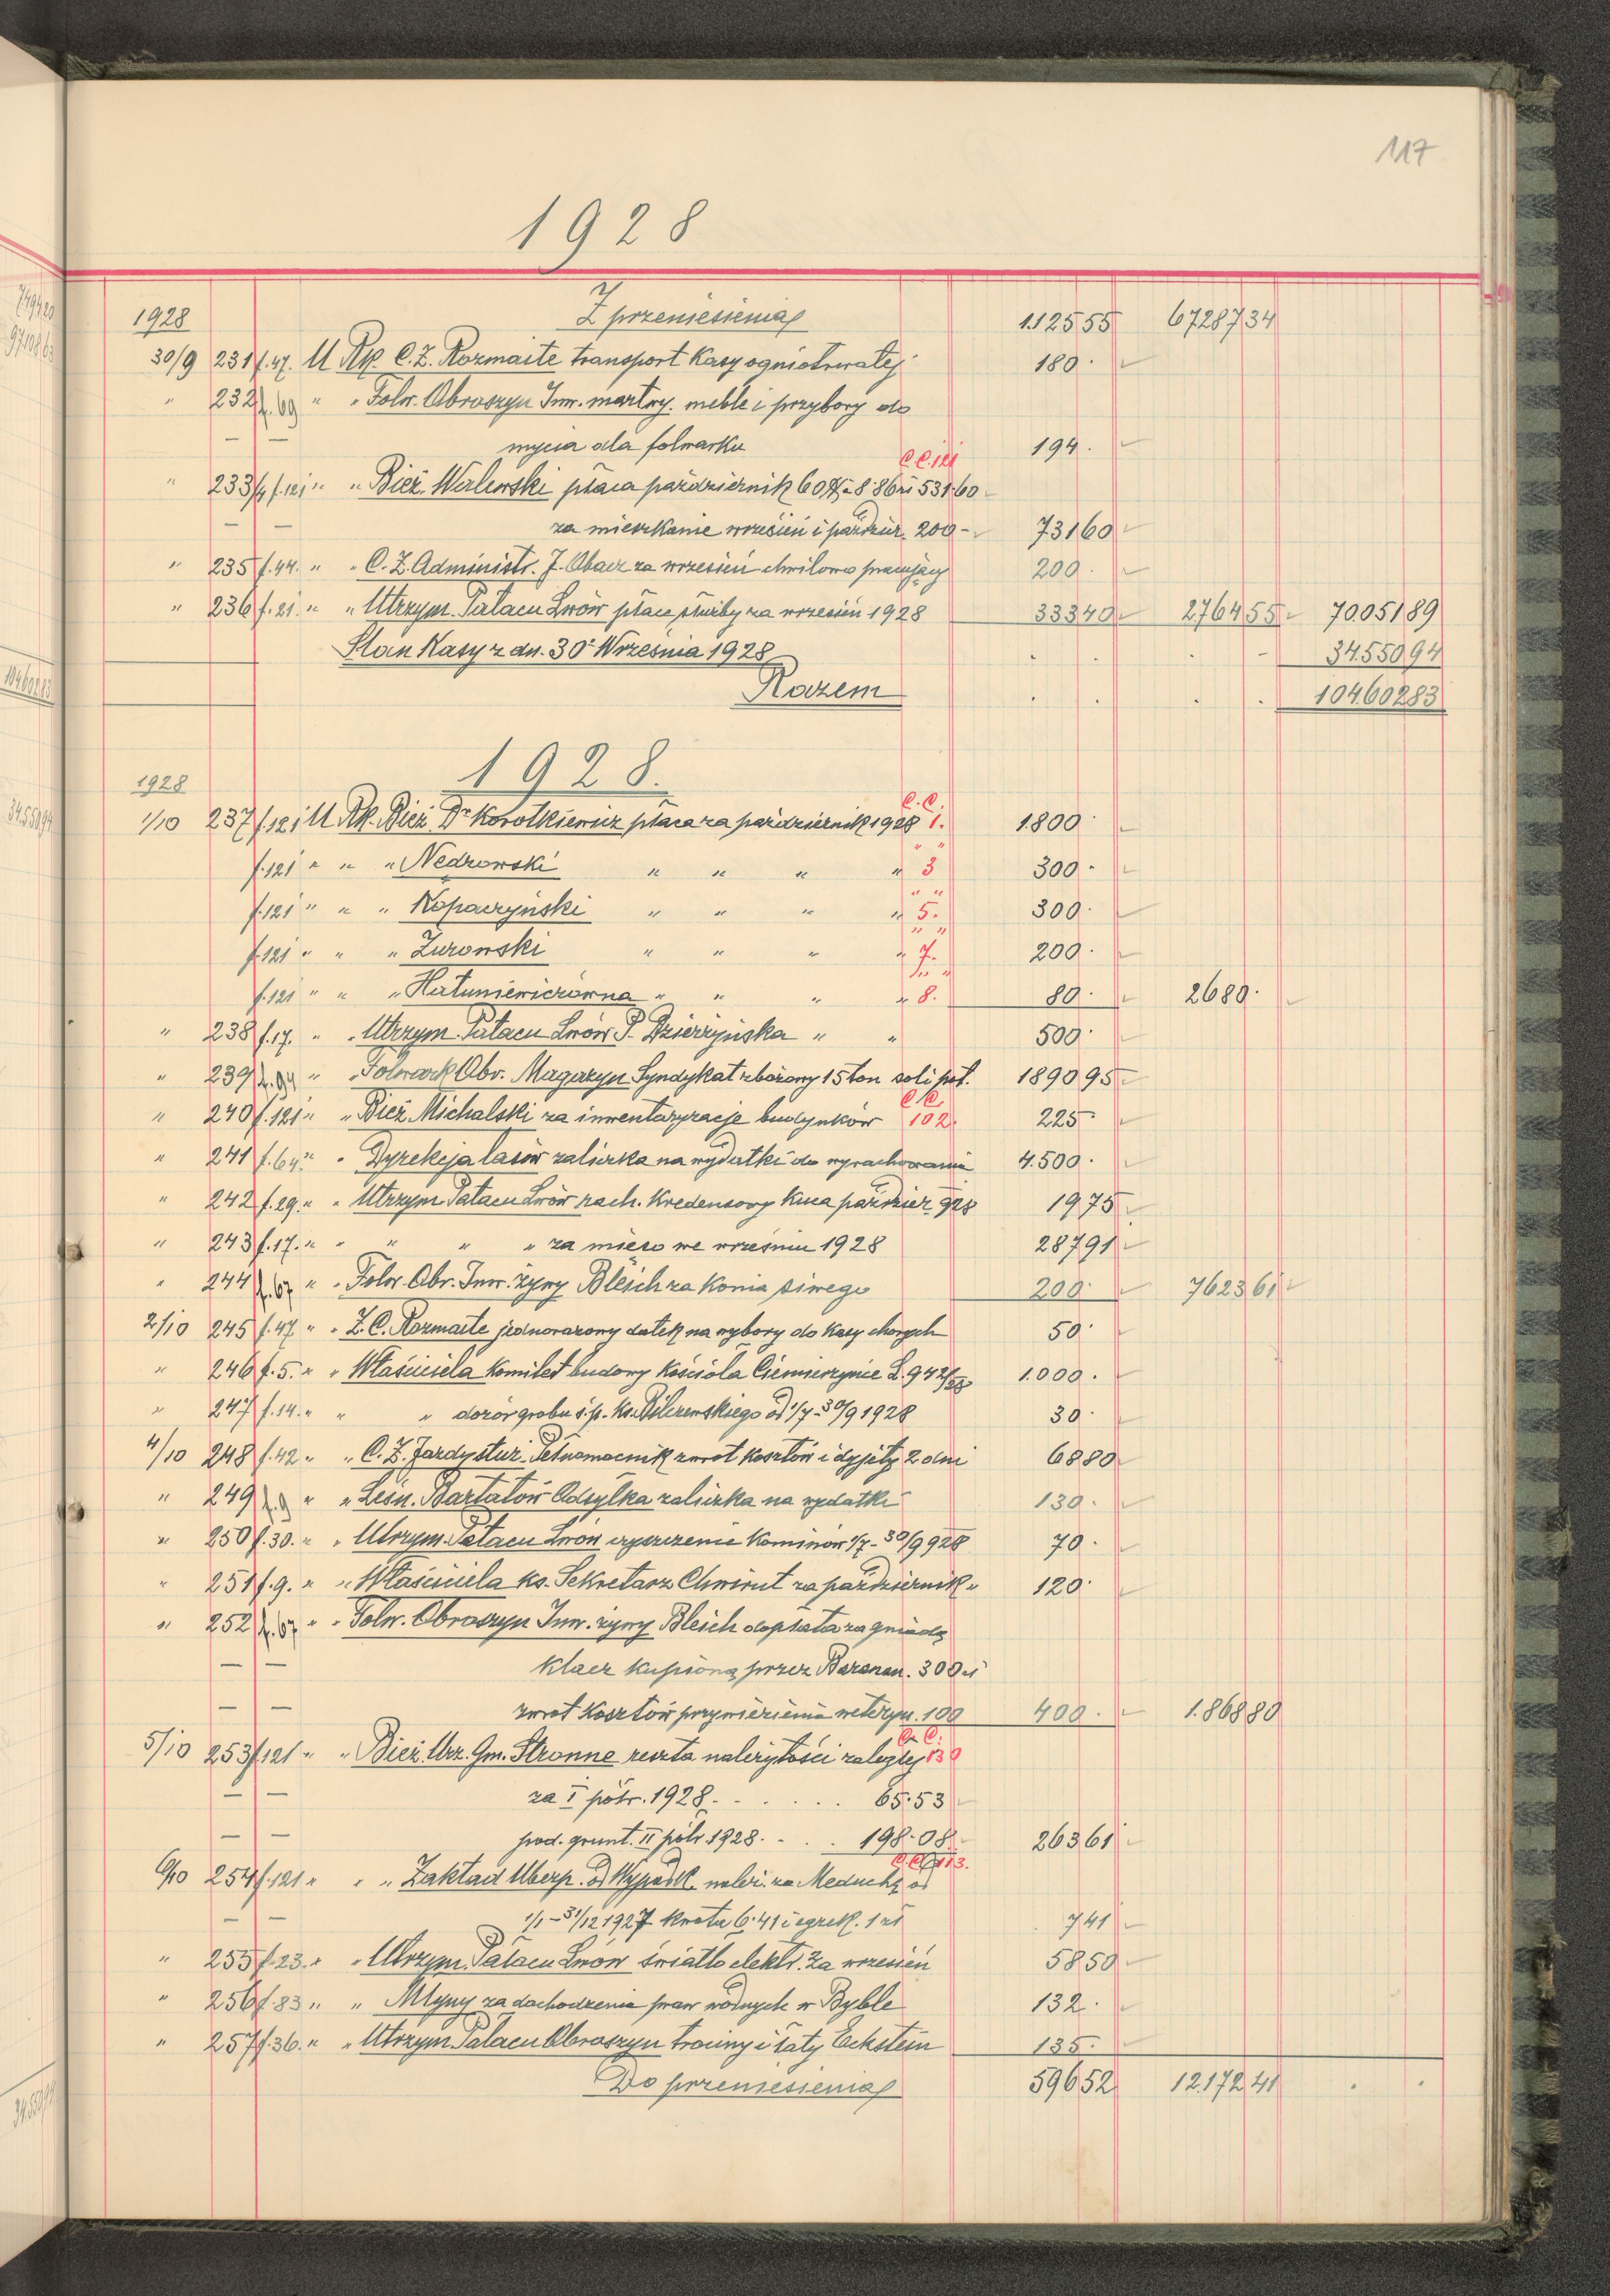 117
1928
1928 Z przeniesienia 1.125 55 67.287 34
30/9 231 f.47. U Rk. C.Z. Rozmaite transport Kasy ogniotrwałej 180 ·
" 232 f.69 " " Folw. Obroszyn Inw. martwy. meble i przybory do
— — mycia dla folwarku 194 ·
C.C. 121
" 233/4 f.121 " " Bież. Walewski płaca październik 60 $ à 8·86 zł 531·60
— — za mieszkanie wrzesień i paździer. 200 - 731 60
" 235 f.44. " " C.Z. Administr. J. Obacz za wrzesień chwilowo pracujący 200 ·
" 236 f.21. " " Utrzym. Pałacu Lwów płace służby za wrzesień 1928 333 40 2764 55 70.051 89
Stan Kasy z dn. 30° Września 1928 · · · - 34.550 94
Razem · · · · 104.602 83
1928.
1928
C.C.
1/10 237 f.121 U Rk. Bież. Dr Korotkiewicz płaca za październik 1928 1. 1.800 ·
" "
f.121 " " " Nedzowski " " " " 3 300 ·
" "
f.121 " " " Kopaczyński " " " " 5. 300 ·
" "
f.121 " " " Żurowski " " " " 7. 200 ·
" "
f.121 " " " Hatuniewiczówna " " " " 8. 80 · 2680 ·
" 238 f.17. " " Utrzym. Pałacu Lwów P. Dzierżyńska " " 500 ·
" 239 f.94 " " Folwark Obr. Magazyn Syndykat zbożowy 15 ton soli pot. 1890 95
C.C.
" 240 f.121 " " Bież. Michalski za inwentaryzacje budynków 102. 225 ·
" 241 f.64. " " Dyrekcja lasów zaliczka na wydatki do wyrachowania 4.500 ·
" 242 f.29. " " Utrzym. Pałacu Lwów rach. Kredensowy Kwa paździer. 928 19 75
" 243 f.17. " " " " " za mięso we wrześniu 1928 287 91
" 244 f.67 " " Folw. Obr. Inw. żywy Bleich za Konia siwego 200 · 7623 61
2/10 245 f.47 " " Z.C. Rozmaite jednorazowy datek na wybory do Kasy chorych 50 ·
" 246 f.5. " " Właściciela Komitet budowy Kościoła Ciemierzynce L. 942/28 1.000 ·
" 247 f.14. " " " dozór grobu ś.p. Ks. Bilczewskiego od 1/7-30/9 1928 30 ·
4/10 248 f.42 " " C.Z. Pełnomocnik zwrot kosztów i dyjety 2 dni 68 80
" 249 f.9 " " Leśn. Bartatów Odsyłka zaliczka na wydatki 130 ·
" 250 f.30. " " Utrzym. Pałacu Lwów czyszczenie Kominów 1/7-30/9 928 70 ·
" 251 f.9. " " Właściciela ks. Sekretarz Chwirut za październik " 120 ·
" 252 f.67 " " Folw. Obroszyn Inw. żywy Bleich dopłata za gniadą
— — klacz kupioną przez 300 zł
— — zwrot Kosztów przywiezienia weteryn. 100 400 · 1.868 80
C.C.
5/10 253 f.121 " " Bież. Urz. Gm. Stronne reszta należytości zaległej 130
— — za I półr. 1928. - . . . . 65·53
— — pod. grunt. II półr 1928. - . . 198·08 263 61
C.C. 113.
6/10 254 f.121 " " " Zakład Ubezp. od Wypadk. należ. za Meduchę od
— — 1/1-31/12 1927 kwota 6·41 i egzek. 1 zł 7 41
" 255 f.23. " " Utrzym. Pałacu Lwów światło elektr. za wrzesień 58 50
" 256 f.83 " " Młyny za dochodzenie praw wodnych w Byble 132 ·
" 257 f.36. " " Utrzym. Pałacu Obroszyn trociny i łaty Eckstein 135 ·
Do przeniesienia 596 52 12.172 41 · ·